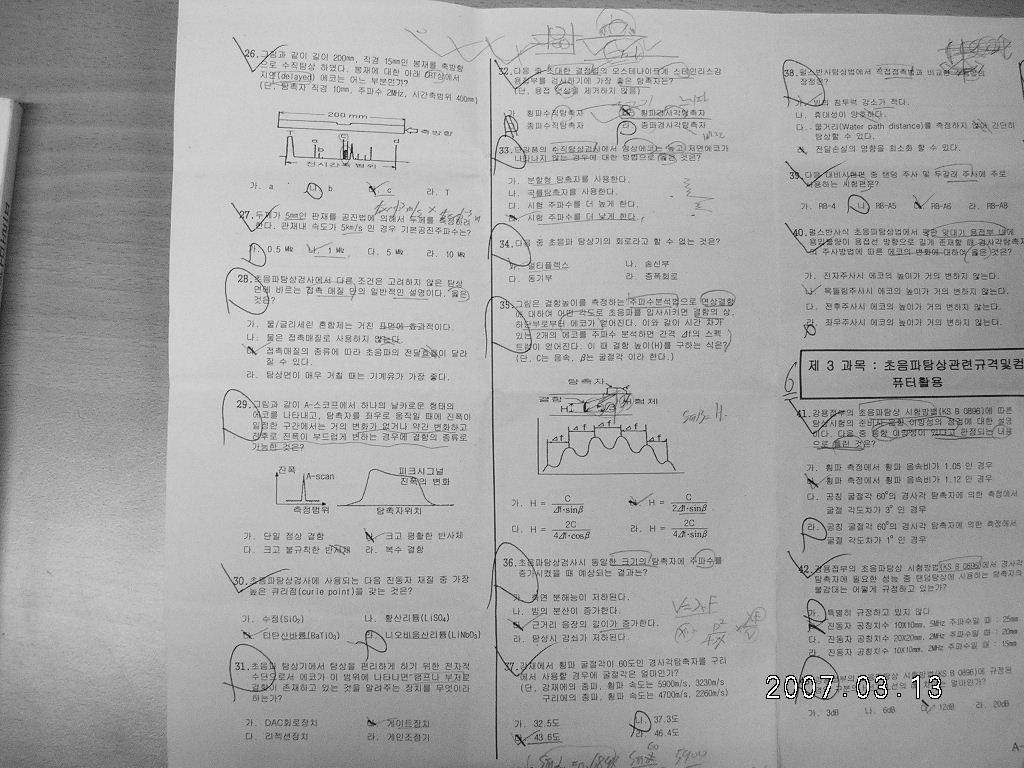 26. 그림과 같이 길이 200mm, 직경 15mm인 봉재를 축방향
으로 수직탐상 하였다. 봉재에 대한 아래 CRT상에서
지연(delayed) 에코는 어느 부분인가?
(단, 탐촉자 직경 10mm, 주파수 2MHz, 시간축범위 400mm)
200 mm
축방향
T
a
b
c
d
전시간축 범위
가. a 나. b 다. c 라. T
27. 두께가 5mm인 판재를 공진법에 의해서 두께를 측정하려
한다. 판재내 속도가 5km/s 인 경우 기본공진주파수는?
가. 0.5 MHz 나. 1 MHz 다. 5 MHz 라. 10 MHz
28. 초음파탐상검사에서 다른 조건은 고려하지 않은 탐상
면에 바르는 접촉 매질 만의 일반적인 설명이다. 옳은
것은?
가. 물/글리세린 혼합제는 거친 표면에 효과적이다.
나. 물은 접촉매질로 사용하지 않는다.
다. 접촉매질의 종류에 따라 초음파의 전달효율이 달라
질 수 있다.
라. 탐상면이 매우 거칠 때는 기계유가 가장 좋다.
29. 그림과 같이 A-스코프에서 하나의 날카로운 형태의
에코를 나타내고, 탐촉자를 좌우로 움직일 때에 진폭이
일정한 구간에서는 거의 변화가 없거나 약간 변화하고
전후로 진폭이 부드럽게 변하는 경우에 결함의 종류로
가능한 것은?
진폭
A-scan
측정범위
피크시그널
진폭의 변화
탐촉자위치
가. 단일 정상 결함 나. 크고 평활한 반사체
다. 크고 불규칙한 반사체 라. 복수 결함
30. 초음파탐상검사에 사용되는 다음 진동자 재질 중 가장
높은 큐리점(curie point)을 갖는 것은?
가. 수정(SiO₂) 나. 황산리튬(LiSO₄)
다. 티탄산바륨(BaTiO₃) 라. 니오비움산리튬(LiNbO₃)
31. 초음파 탐상기에서 탐상을 편리하게 하기 위한 전자적
수단으로서 에코가 이 범위에 나타나면 램프나 부저로
결함이 존재하고 있는 것을 알려주는 장치를 무엇이라
하는가?
가. DAC회로장치 나. 게이트장치
다. 리젝션장치 라. 게인조절기
32. 다음 중 조대한 결정립의 오스테나이트계 스테인리스강
용접부를 검사하기에 가장 좋은 탐촉자는?
(단, 용접 덧살을 제거하지 않음)
가. 횡파수직탐촉자 나. 횡파경사각탐촉자
다. 종파수직탐촉자 라. 종파경사각탐촉자
33. 단강품의 수직탐상검사에서 임상에코는 높고 저면에코가
나타나지 않는 경우에 대한 방법으로 옳은 것은?
가. 분할형 탐촉자를 사용한다.
나. 국률탐촉자를 사용한다.
다. 시험 주파수를 더 높게 한다.
라. 시험 주파수를 더 낮게 한다.
34. 다음 중 초음파 탐상기의 회로라고 할 수 없는 것은?
가. 멀티플렉스 나. 송신부
다. 동기부 라. 증폭회로
35. 그림은 결함높이를 측정하는 주파수분석법으로 면상결함
에 대하여 어떤 각도로 초음파를 입사시키면 결함의 상,
하단부로부터 에코가 얻어진다. 이와 같이 시간 차가
있는 2개의 에코를 주파수 분석하면 간격 Δf의 스펙
트럼이 얻어진다. 이 때 결함 높이(H)를 구하는 식은?
(단, C는 음속, β는 굴절각 이라 한다.)
탐촉자
결함
H
시험체
Δf Δf Δf Δf
sinβ= H.
가. H = C / 2Δf·sinβ 나. H = C / 2Δf·sinβ
다. H = 2C / 4Δf·cosβ 라. H = 2C / 4Δf·sinβ
36. 초음파탐상검사시 동일한 크기의 탐촉자에 주파수를
증가시켰을 때 예상되는 결과는?
가. 측면 분해능이 저하된다.
나. 빔의 분산이 증가한다.
다. 근거리 음장의 길이가 증가한다.
라. 탐상시 감쇠가 저하된다.
37. 강재에서 횡파 굴절각이 60도인 경사각탐촉자를 구리
에서 사용할 경우에 굴절각은 얼마인가?
(단, 강재에의 종파, 횡파 속도는 5900m/s, 3230m/s
구리에의 종파, 횡파 속도는 4700m/s, 2260m/s)
가. 32.5도 나. 37.3도
다. 43.6도 라. 46.4도
38. 펄스반사탐상법에서 직접접촉법과 비교한 수침법의
장점은?
가. 빔의 침투력 감소가 적다.
나. 휴대성이 양호하다.
다. 물거리(Water path distance)를 측정하지 않아 간단히
탐상할 수 있다.
라. 전달손실의 영향을 최소화 할 수 있다.
39. 다음 대비시험편 중 탠덤 주사 및 두갈래 주사에 주로
사용하는 시험편은?
가. RB-4 나. RB-A5 다. RB-A6 라. RB-A8
40. 펄스반사식 초음파탐상법에서 강판 맞대기 용접부 내에
용입불량이 용접선 방향으로 길게 존재할 때 경사각탐촉자
의 주사방법에 따른 에코의 변화에 대하여 옳은 것은?
가. 진자주사시 에코의 높이가 거의 변하지 않는다.
나. 목돌림주사시 에코의 높이가 거의 변하지 않는다.
다. 전후주사시 에코의 높이가 거의 변하지 않는다.
라. 좌우주사시 에코의 높이가 거의 변하지 않는다.
제 3 과목 : 초음파탐상관련규격및컴
퓨터활용
41. 강용접부의 초음파탐상 시험방법(KS B 0896)에 따른
탐상시험의 준비시 음향 이방성의 점검에 대한 설명
이다. 다음 중 음향 이방성이 있다고 판정되는 내용
으로 틀린 것은?
가. 횡파 측정에서 횡파 음속비가 1.05 인 경우
나. 횡파 측정에서 횡파 음속비가 1.12 인 경우
다. 공칭 굴절각 60°의 경사각 탐촉자에 의한 측정에서
굴절 각도차가 3° 인 경우
라. 공칭 굴절각 60°의 경사각 탐촉자에 의한 측정에서
굴절 각도차가 1° 인 경우
42. 강용접부의 초음파탐상 시험방법(KS B 0896)에서 경사각
탐촉자에 필요한 성능 중 탠덤탐상에 사용하는 탐촉자의
불감대는 어떻게 규정하고 있는가?
가. 특별히 규정하고 있지 않다.
나. 진동자 공칭치수 10X10mm, 5MHz 주파수일 때 : 25mm
다. 진동자 공칭치수 20X20mm, 2MHz 주파수일 때 : 20mm
라. 진동자 공칭치수 10X10mm, 2MHz 주파수일 때 : 15mm
(KS B 0896)에 규정된
얼마인가?
가. 3dB 나. 6dB 다. 12dB 라. 20dB
2007.03.13